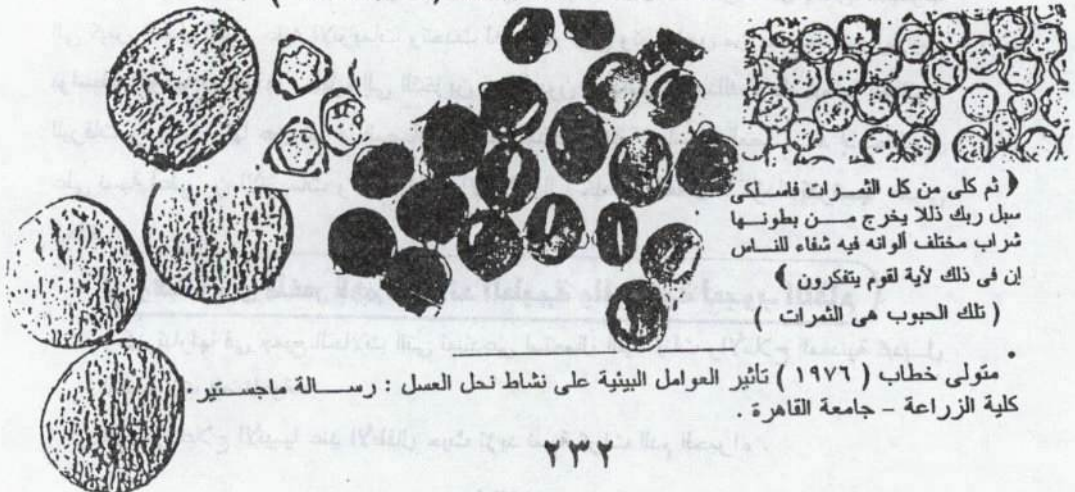 ﴿ ثم كلى من كل الثمرات فاسلكى
سبل ربك ذللا يخرج من بطونها
شراب مختلف ألوانه فيه شفاء للناس
إن فى ذلك لآية لقوم يتفكرون ﴾
( تلك الحبوب هى الثمرات )
متولى خطاب ( ١٩٧٦ ) تأثير العوامل البيئية على نشاط نحل العسل : رسالة ماجستير .
كلية الزراعة – جامعة القاهرة .
٢٣٢